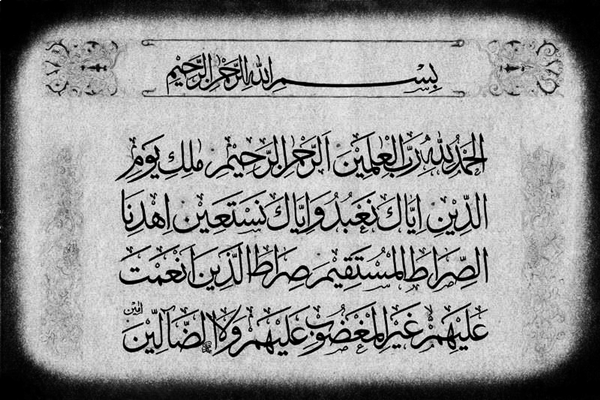 بِسْمِ اللهِ الرَّحْمٰنِ الرَّحِيْمِ
اَلْحَمْدُ لِلّٰهِ رَبِّ الْعٰلَمِيْنَ اَلرَّحْمٰنِ الرَّحِيْمِ مٰلِكِ يَوْمِ
الدِّيْنِ اِيَّاكَ نَعْبُدُ وَاِيَّاكَ نَسْتَعِيْنُ اِهْدِنَا
الصِّرَاطَ الْمُسْتَقِيْمَ صِرَاطَ الَّذِيْنَ اَنْعَمْتَ
عَلَيْهِمْ غَيْرِ الْمَغْضُوْبِ عَلَيْهِمْ وَلَا الضَّآلِّيْنَ اٰمِيْن